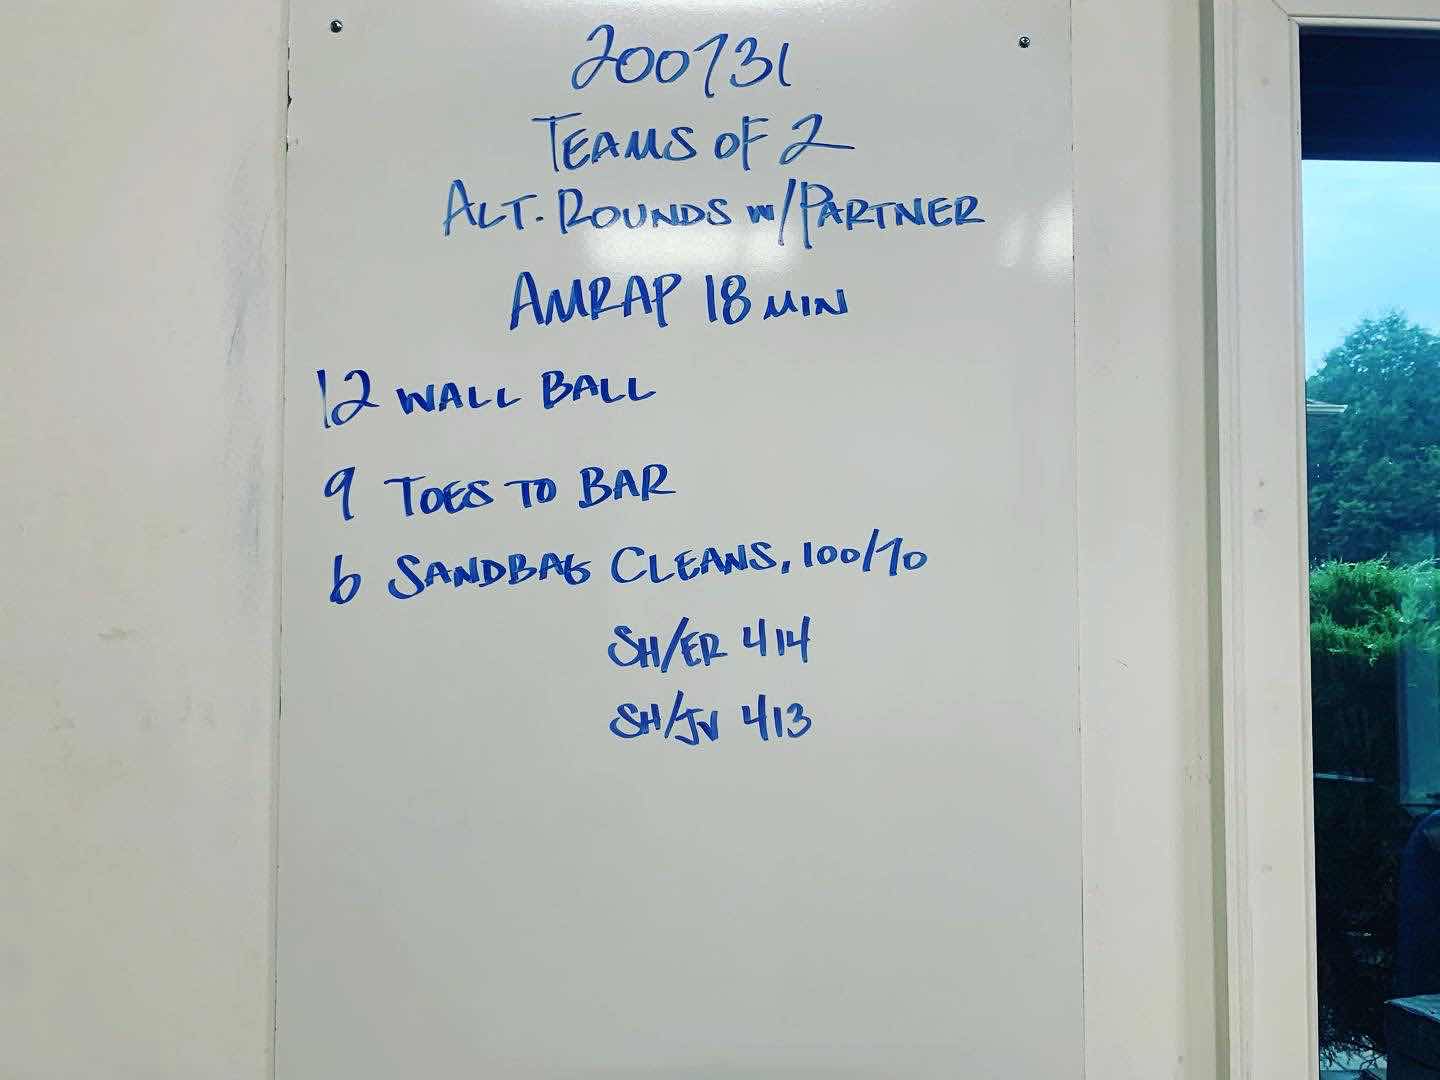 200731
TEAMS OF 2
ALT. ROUNDS W/PARTNER
AMRAP 18 MIN
12 WALL BALL
9 TOES TO BAR
6 SANDBAG CLEANS, 100/70
SH/ER 414
SH/JV 413